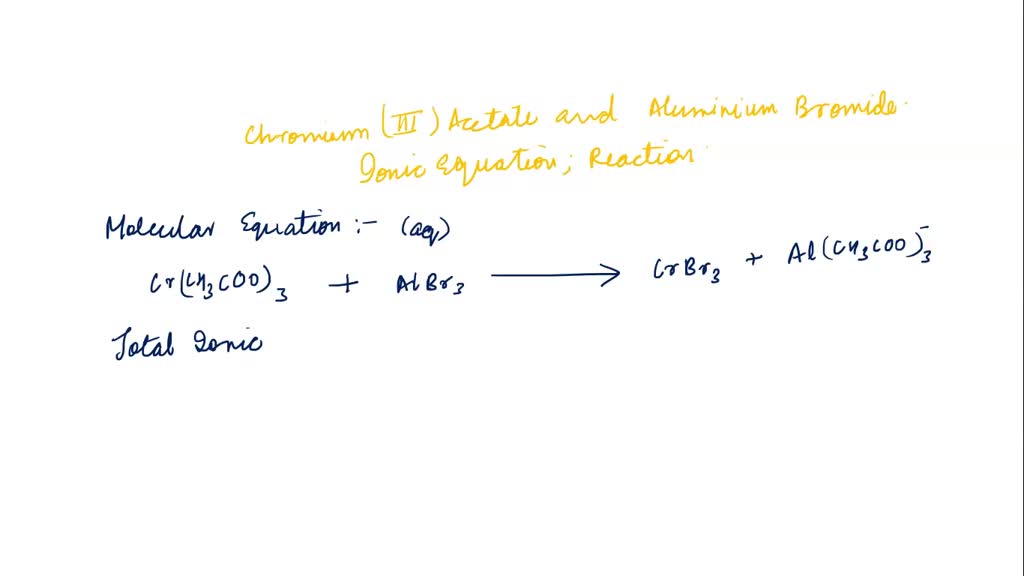 Chromium (III) Acetate and Aluminium Bromide.
Ionic Equation; Reaction.
Molecular Equation :- (aq)
Cr(CH₃COO)₃ + AlBr₃ ⟶ CrBr₃ + Al(CH₃COO)⁻₃
Total Ionic